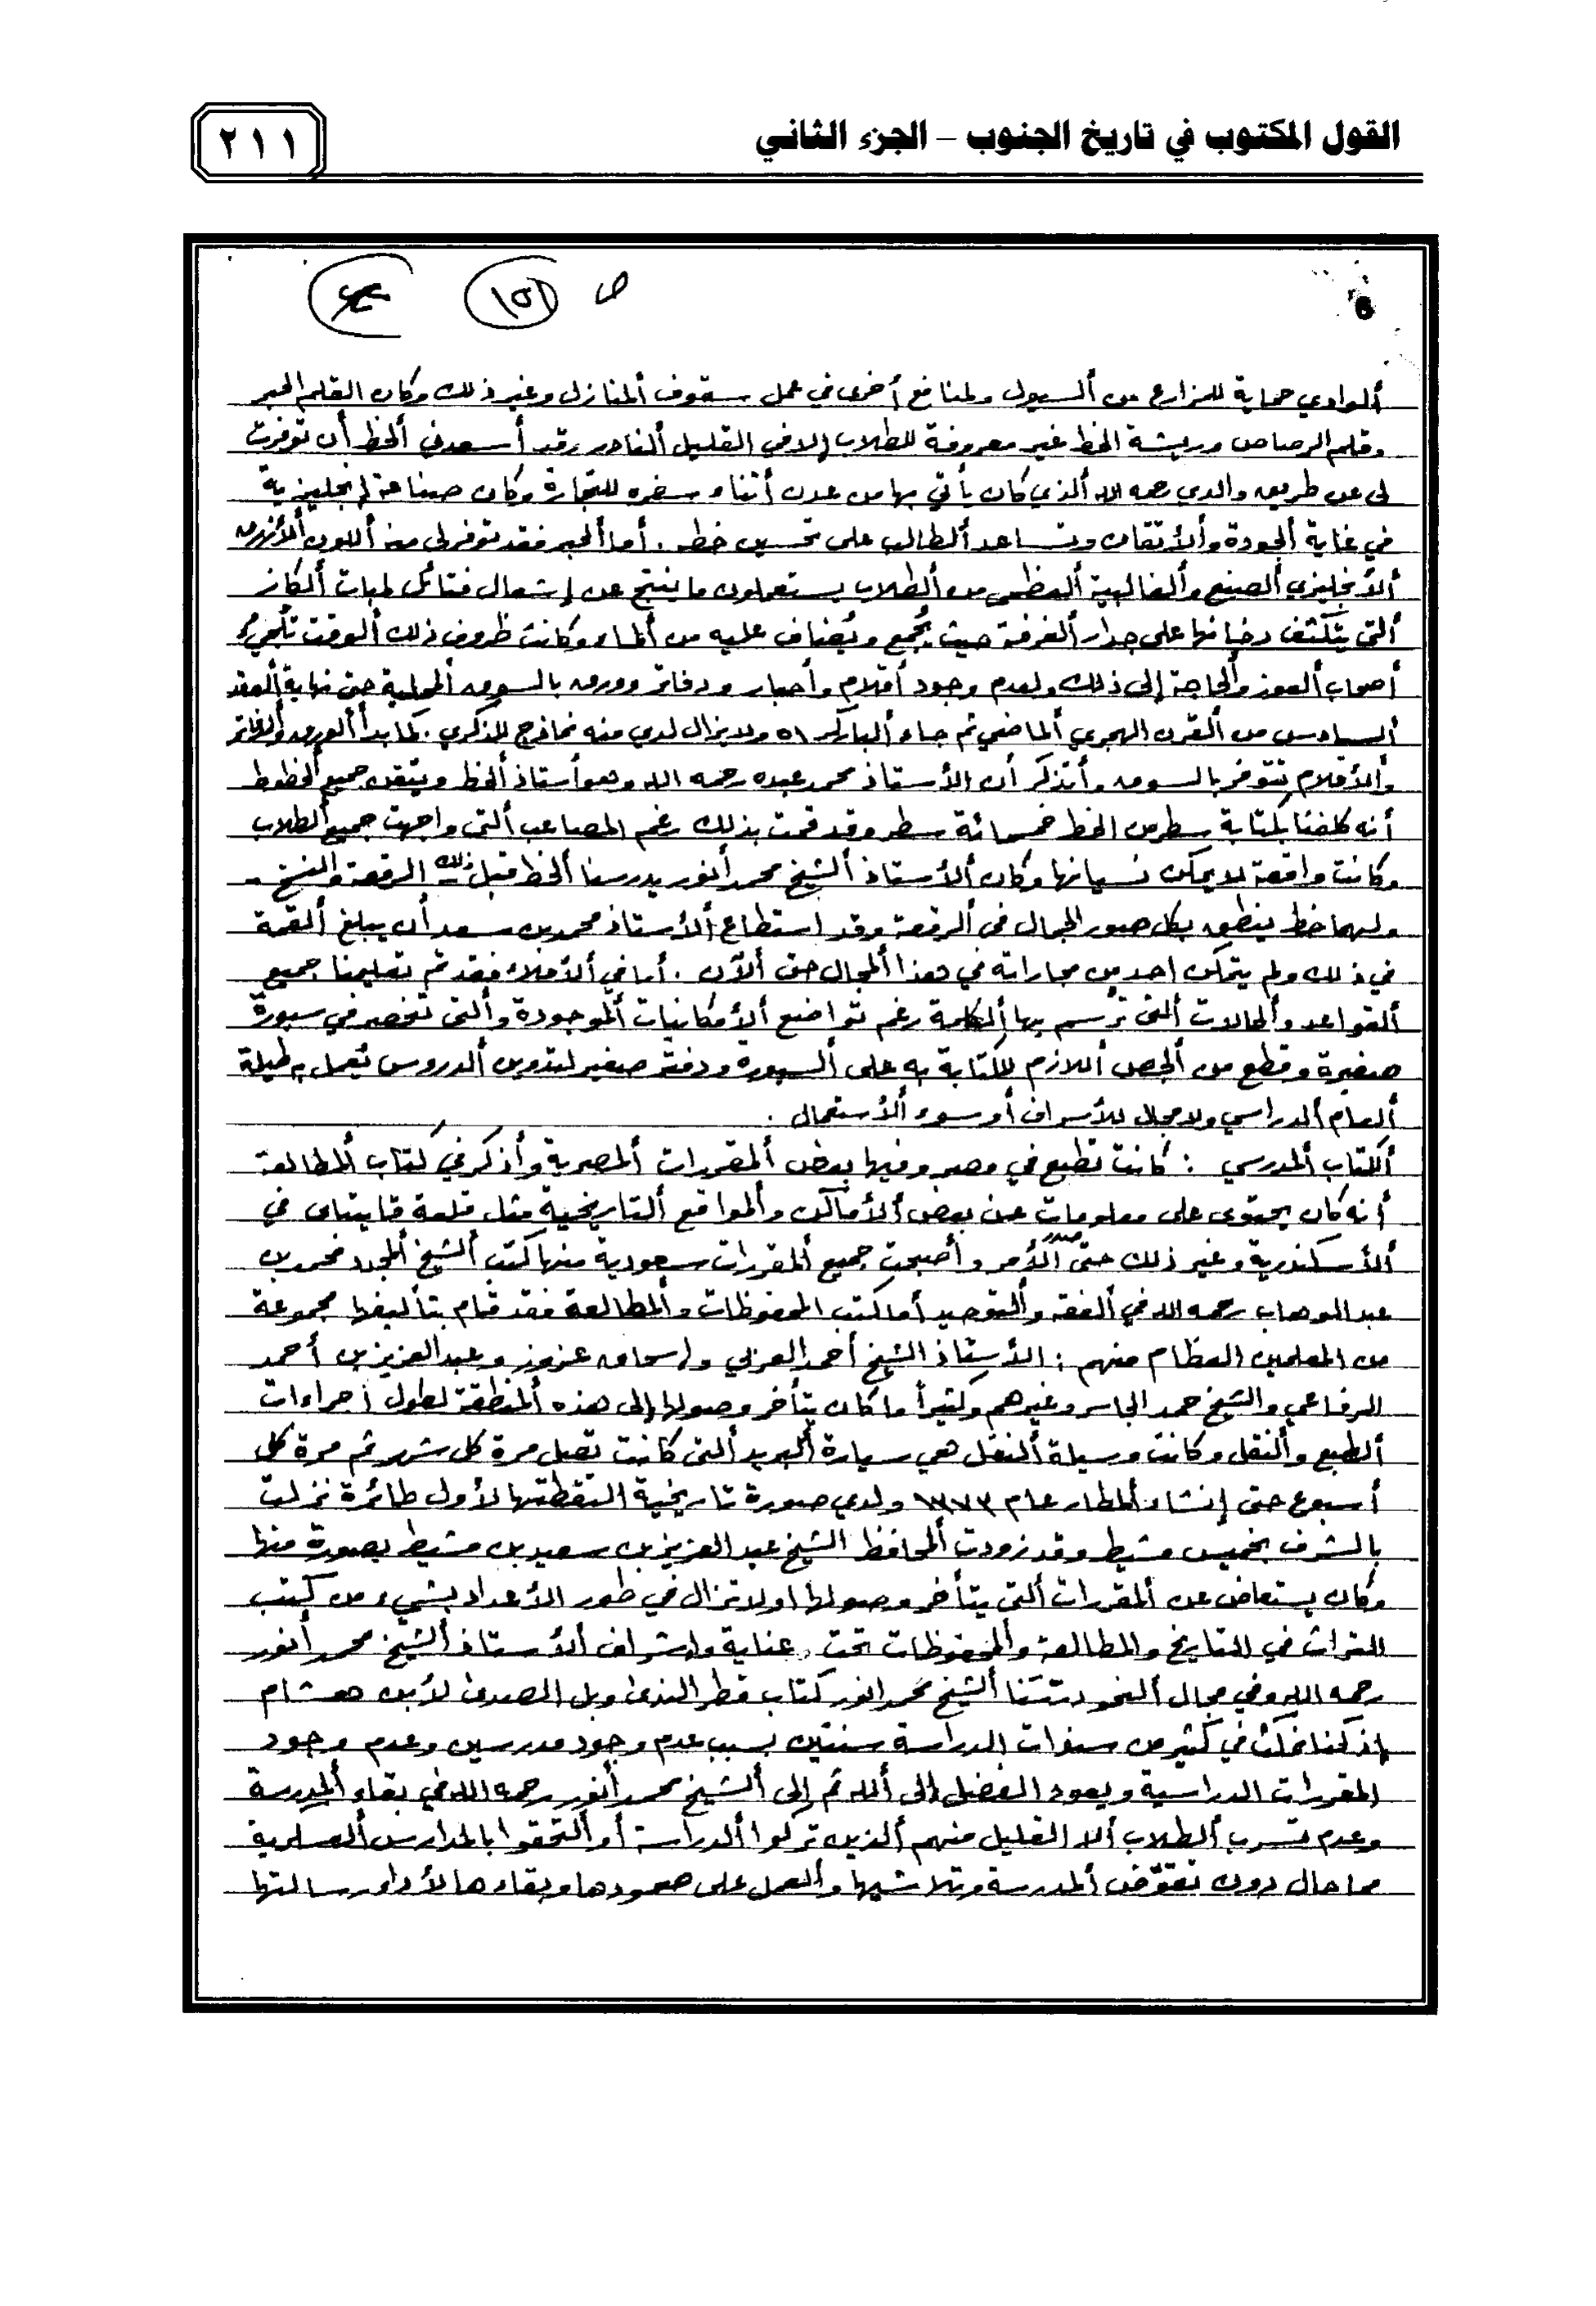 القول المكتوب في تاريخ الجنوب – الجزء الثاني
٢١١
6
ص
١٥١
ألوادي حماية للمزارع من ألسيول ولمنافع أخرى في عمل سقوف ألمنازل وغير ذلك وكان القلم الحبر
وقلم الرصاص وريشة الخط غير معروفة للطلاب إلا في القليل ألنادر وقد أسعدني ألحظ أن توفرت
لي عن طريق والدي رحمه الله ألذي كان يأتي بها من عدن أثناء سفره للتجارة وكان صناعة إنجليزية
في غاية ألجودة وألأتقان وتساعد ألطالب على تحسين خطه . أما ألحبر فقد توفر لي منه أللون ألأزرق
ألأنجليزي ألصنع وألغالبية ألعظمى من ألطلاب يستعملون ما ينتج عن إشعال فتائل لمبات ألكاز
ألتي يتكثف دخانها على جدار ألغرفة حيث يُجمع ويُضاف عليه من ألماء وكانت ظروف ذلك ألوقت تلجيء
أصحاب ألعوز وألحاجة إلى ذلك ولعدم وجود أقلام وأحبار ودفاتر وورق بالسوق ألمحلية حتى نهاية ألعقد
ألسادس من ألقرن الهجري ألماضي ثم جاء ألباركر ٥١ ولا يزال لدي منه نماذج للذكرى . كما بدأ ألورق وألدفاتر
وألأقلام تتوفر بالسوق وأتذكر أن الأستاذ محمد عبده رحمه الله وهو أستاذ ألخط ويتقن جميع ألخطوط
أنه كلفنا بكتابة سطر من الخط خمسمائة سطر وقد قمت بذلك رغم المصاعب ألتي واجهت جميع ألطلاب
وكانت واقعة لا يمكن نسيانها وكان ألأستاذ ألشيخ محمد أنور يدرسنا ألخط قبل ذلك الرقعة والنسخ -
ولهما خط ينطق بكل صور الجمال في ألرقعة وقد استطاع ألأستاذ محمد بن سعد أن يبلغ ألقمة
في ذلك ولم يتمكن احد من مجاراته في هذا ألمجال حتى ألآن . أما في ألأملاء فقد تم تعليمنا جميع
ألقواعد وألحالات ألتي تُرسم بها ألكلمة رغم تواضع ألأمكانيات ألموجودة وألتي تنحصر في سبورة
صغيرة وقطع من ألجص أللازم للكتابة به على ألسبورة ودفتر صغير لتدوين ألدروس يُعمل به طيلة
ألعام ألدراسي ولا مجال للأسراف أو سوء ألأستعمال .
ألكتاب ألمدرسي : كانت تطبع في مصر وفيها بعض ألمقررات ألمصرية وأذكر في كتاب ألمطالعة
أنه كان يحتوي على معلومات عن بعض ألأماكن وألمواقع ألتاريخية مثل قلعة قايتباي في
ألأسكندرية وغير ذلك حتى صدر ألأمر وأصبحت جميع ألمقررات سعودية منها كتب ألشيخ ألمجدد محمد بن
عبد الوهاب رحمه الله في ألفقه وألتوحيد أما كتب المحفوظات وألمطالعة فقد قام بتأليفها مجموعة
من المعلمين العظام منهم : الأستاذ الشيخ أحمد العربي وإسحاق عزوز وعبد العزيز بن أحمد
الرفاعي والشيخ حمد الجاسر وغيرهم وكثيراً ما كان يتأخر وصولها إلى هذه ألمنطقة لطول أجراءات
ألطبع وألنقل وكانت وسيلة ألنقل هي سيارة ألبريد ألتي كانت تصل مرة كل شهر ثم مرة كل
أسبوع حتى إنشاء ألمطار عام ١٣٧٣ ولدي صورة تاريخية التقطتها لأول طائرة نزلت
بالشرف بخميس مشيط وقد زودت ألمحافظ الشيخ عبد العزيز بن سعيد بن مشيط بصورة منها
وكان يستعاض عن ألمقررات ألتي يتأخر وصولها او لا تزال في طور الأعداد بشيء من كتب
التراث في التاريخ والمطالعة وألمحفوظات تحت عناية وإشراف ألأستاذ ألشيخ محمد أنور
رحمه الله وفي مجال ألنحو ألشيخ محمد انور كتاب قطر الندى وبل الصدى لأبن هشام
إذ كنا نمكث في كثير من سنوات الدراسة سنتين بسبب عدم وجود مدرسين وعدم وجود
المقررات الدراسية ويعود الفضل إلى ألله ثم إلى ألشيخ محمد أنور رحمه الله في بقاء ألمدرسة
وعدم تسرب ألطلاب ألا القليل منهم ألذين تركوا ألدراسة أو ألتحقوا بالمدارس ألعسكرية
مما حال دون تقوّض ألمدرسة وتلاشيها وألعمل على صمودها وبقاءها لأداء رسالتها